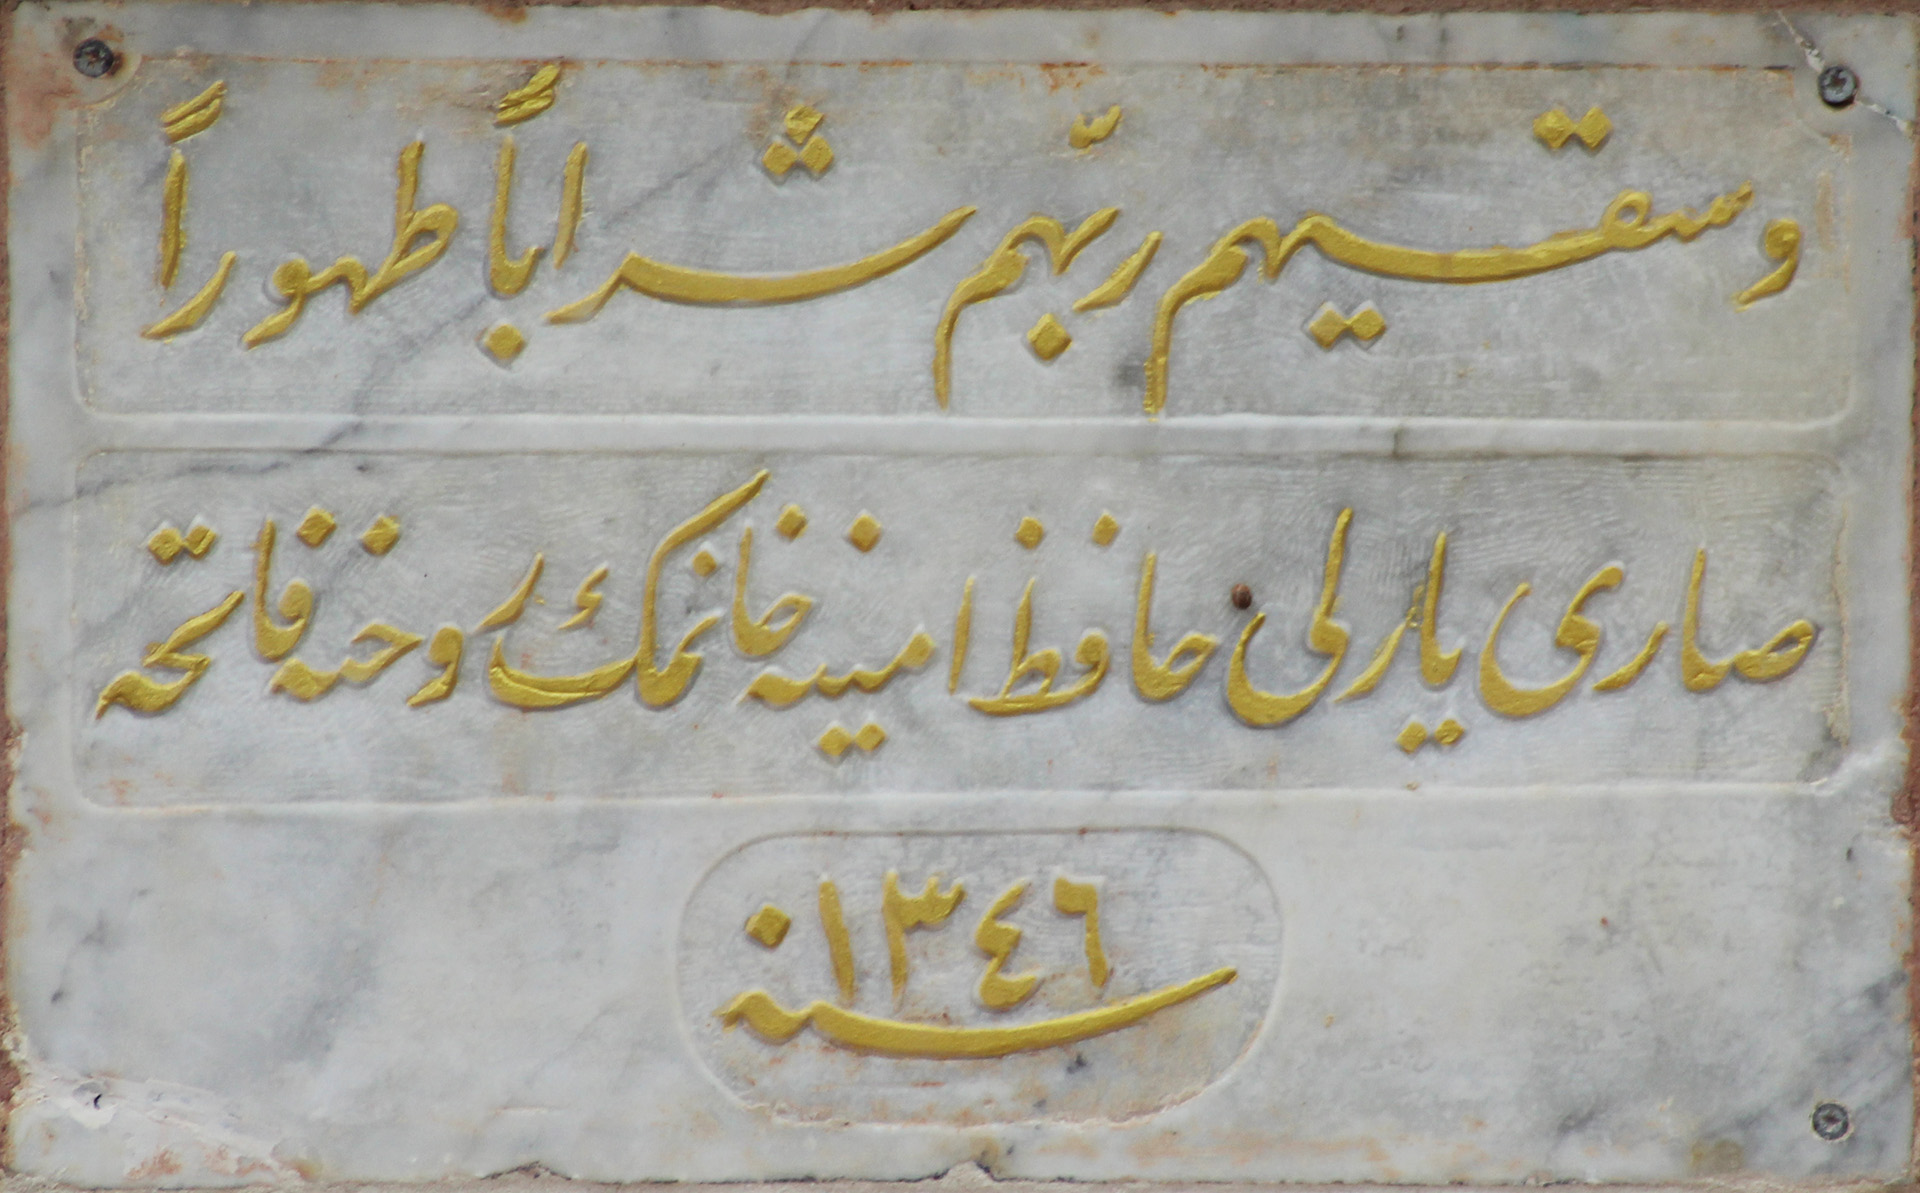 وسقیهم ربّهم شراباً طهوراً
صاری یارلی حافظ امینه خانمڭ روحنه فاتحه
سنه ١٣٤٦